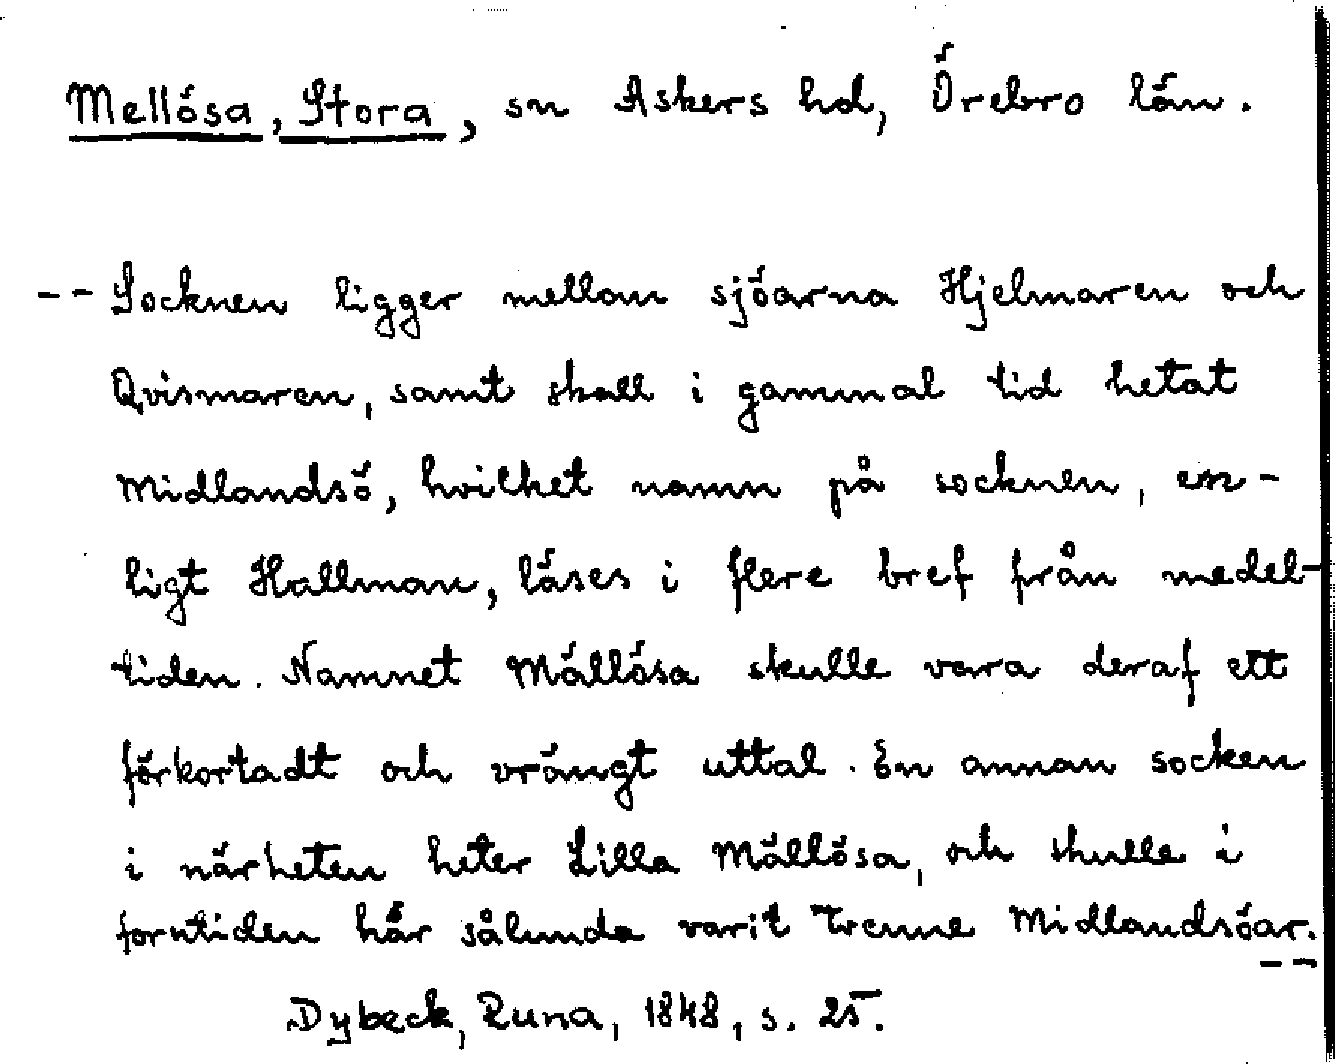 Mellösa, Stora, sn Askers hd, Örebro län.
-- Socknen ligger mellan sjöarna Hjelmaren och
Qvismaren, samt skall i gammal tid hetat
Midlandsö, hvilket namn på socknen, en-
ligt Hallman, läses i flere bref från medel-
tiden. Namnet Mällösa skulle vara deraf ett
förkortadt och vrängt uttal. En annan socken
i närheten heter Lilla Mällösa, och skulle i
forntiden här sålunda varit trenne Midlandsöar. --
Dybeck, Runa, 1848, s. 25.